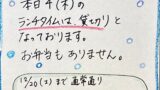 本日4(木)の
ランチタイムは、貸切りと
なっております。
お弁当もありません。
12/20(土)まで通常通り